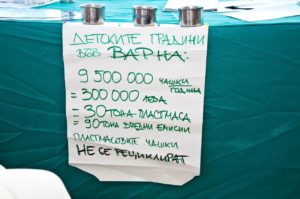 ДЕТСКИТЕ ГРАДИНИ
ВЪВ ВАРНА:
9 500 000 ЧАШКИ
ГОДИНА
= 300 000 ЛЕВА
= 30 ТОНА ПЛАСТМАСА
= 90 ТОНА ВРЕДНИ ЕМИСИИ
ПЛАСТМАСОВИТЕ ЧАШКИ
НЕ СЕ РЕЦИКЛИРАТ